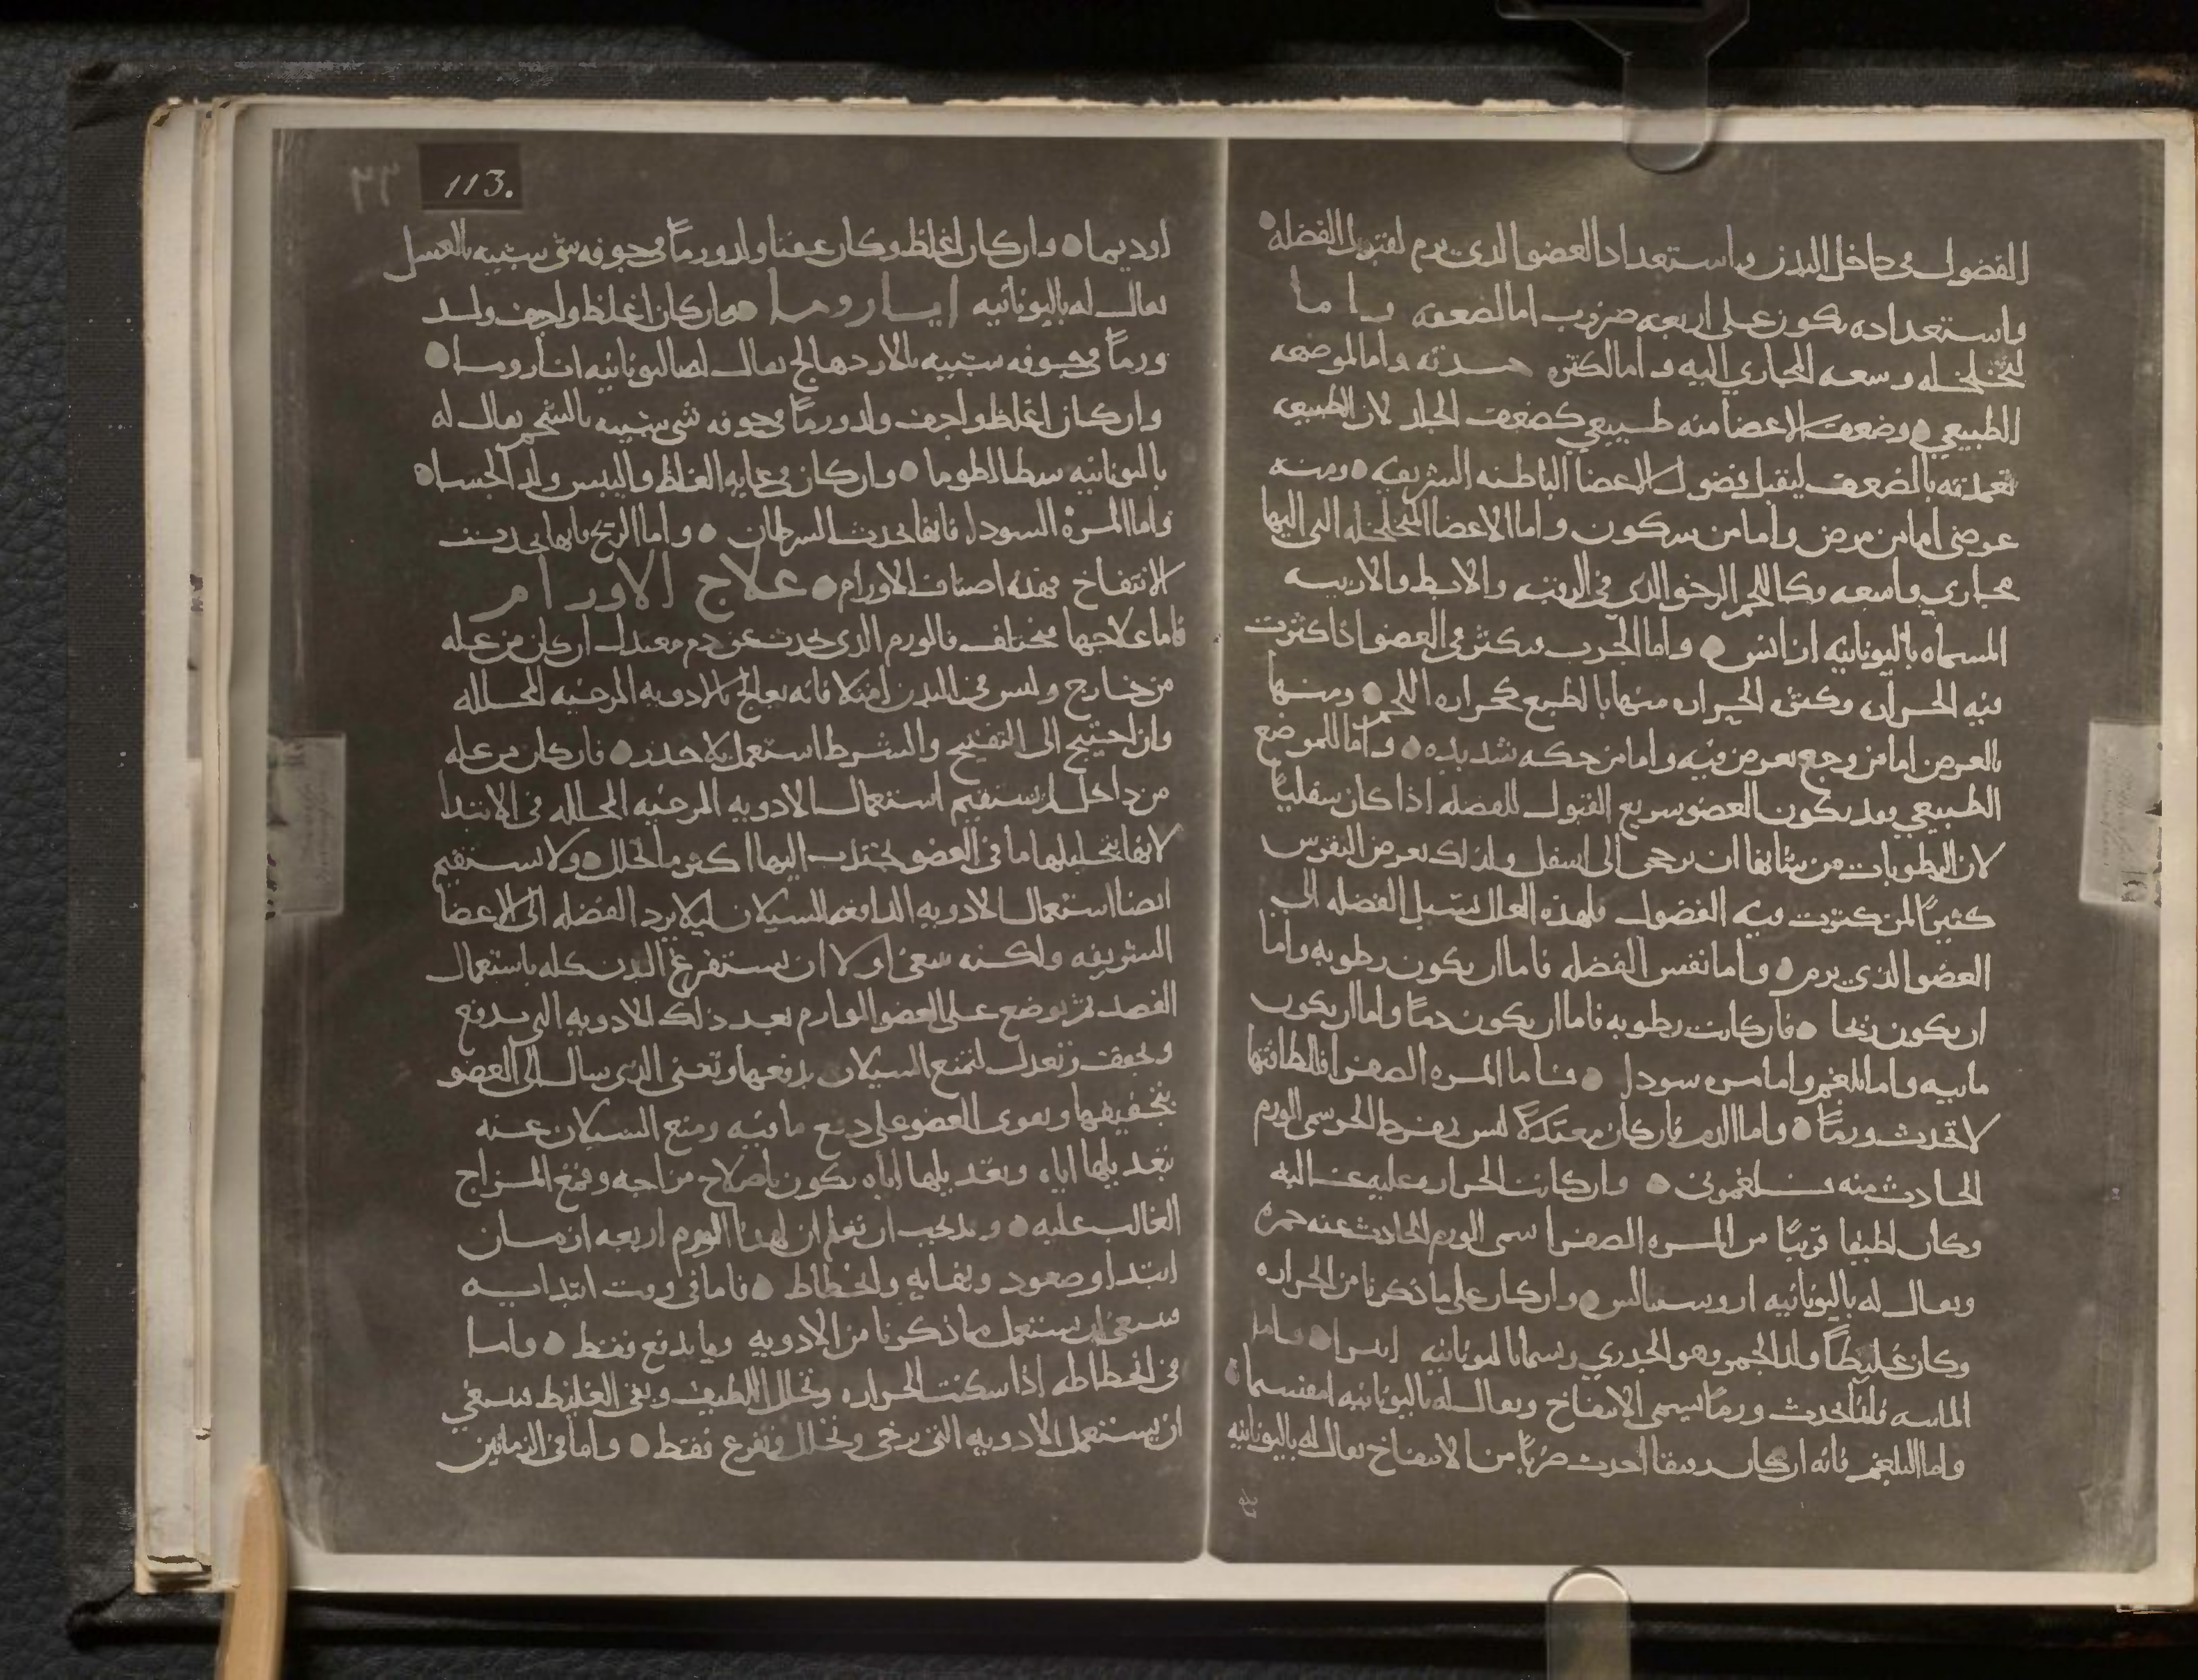 الفضول في داخل البدن واستعداد العضو الذي يرم لقبول الفضله
واستعداده يكون على اربعه ضروب اما لضعفه واما
لتخلخله وسعه المجاري اليه واما لكثره حدته واما لموضعه
الطبيعي وضعف الاعضا منه طبيعي كضعف الجلد لان الطبيعه
تعمدته بالضعف ليقبل فضول الاعضا الباطنه الشريفه ومنه
عرضي اما من مرض واما من سكون واما الاعضا المتخلخله التي اليها
مجاري واسعه وكاللحم الرخو الذي في الرقبه والابط والاربيه
المسماه باليونانيه واما الجرب فيكثر في العضو اذا كثرت
فيه الحراره وكثره الحراره منها بالطبع كحراره اللحم ومنها
بالعرض اما من وجع يعرض فيه واما من حكه شديده واما للموضع
الطبيعي بعد يكون العضو سريع القبول للفضله اذا كان سفليا
لان الرطوبات من شانها ان ترجحن الى اسفل ولذلك يعرض النقرس
كثيرا لمن كثرت فيه الفضول فلهذه العلل تسيل الفضله الى
العضو الذي يرم واما نفس الفضله فاما ان يكون رطوبه واما
ان يكون ريحا فان كانت رطوبه فاما ان يكون دما واما ان يكون
مايية واما بلغم واما مره سودا فاما المره الصفرا فللطافتها
لا تحدث ورما واما الدم فان كان معتدلا ليس بمفرط الحر سمي الورم
الحادث منه فلغموني وان كانت الحراره عليه غالبه
وكان لطيفا قريبا من المره الصفرا سمي الورم الحادث عنه حمره
ويقال له باليونانيه اروسيبالس وان كان على ما ذكرنا من الحراره
وكان غليظا ولد الجمر وهو الجدري ويسما باليونانيه واما
الماييه فانها تحدث ورما يسمى الانتفاخ ويقال له باليونانيه امفسيما
واما البلغم فانه ان كان رقيقا احدث ضربا من الانتفاخ يقال له باليونانيه
113.
اوديما وان كان اغلظ وكان عفنا ولد ورما في جوفه شي شبيه بالعسل
يقال له باليونانيه وان كان اغلظ واجف ولد
ورما في جوفه شبيه بالاردهالج يقال لها باليونانيه اثاروما
وان كان اغلظ واجف ولد ورما في جوفه شي شبيه بالشحم يقال له
باليونانيه سطالطوما وان كان في غايه الغلظ واليبس ولد الجسا
واما المره السودا فانها تحدث السرطان واما الريح فانها تحدث
الانتفاخ فهذه اصناف الاورام علاج الاورام
فاما علاجها مختلف فالورم الذي يحدث عن دم معتدل ان كان من عله
من خارج وليس في البدن امتلا فانه يعالج بالادويه المرخيه المحلله
وان احتيج الى التفتيح والشرط استعمل بلا حذر فان كان من عله
من داخل لم يستقيم استعمال الادويه المرخيه المحلله في الابتدا
لانها بتحليلها ما في العضو تجتذب اليها اكثر مما تحلل ولا يستقيم
ايضا استعمال الادويه الدافعه للسيلان ليلا يرد الفضله الى الاعضا
الشريفه ولكنه ينبغي اولا ان يستفرغ البدن كله باستعمال
الفصد ثم يوضع على العضو الوارم بعد ذلك الادويه التي تدفع
وتجفف وتعدل لتمنع السيلان بدفعها وتفني الذي سال الى العضو
بتجفيفها ويقوى العضو على دفع ما فيه ومنع السيلان عنه
بتعديلها اياه وتعديلها اياه يكون باصلاح مزاجه وقمع المزاج
الغالب عليه وقد يجب ان تعلم ان لهذا الورم اربعه ازمان
ابتدا وصعود ونهايه وانحطاط فاما في وقت ابتدايه
فينبغي ان يستعمل مما ذكرنا من الادويه وما يدفع فقط واما
في انحطاطه اذا سكنت الحراره وتحلل اللطيف وبقي الغليظ فينبغي
ان يستعمل الادويه التي ترخي وتحلل وتفرغ فقط واما في الزمانين